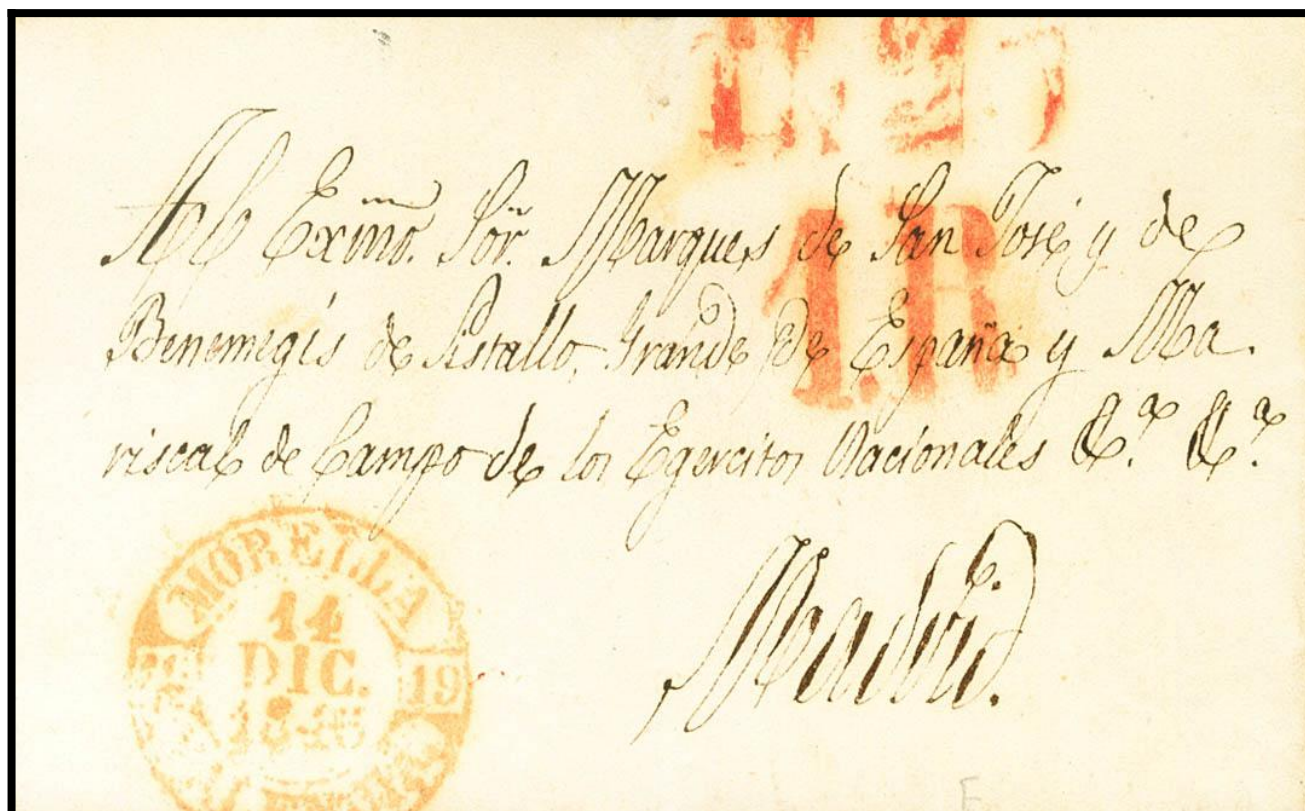 1.R
Al Exmo. Sor. Marques de San José y de
Benemegis de Sistallo, Grande de España y Ma.
riscal de Campo de los Egercitos Nacionales &.ª &.ª
MORELLA
14
DIC.
19
Madrid.